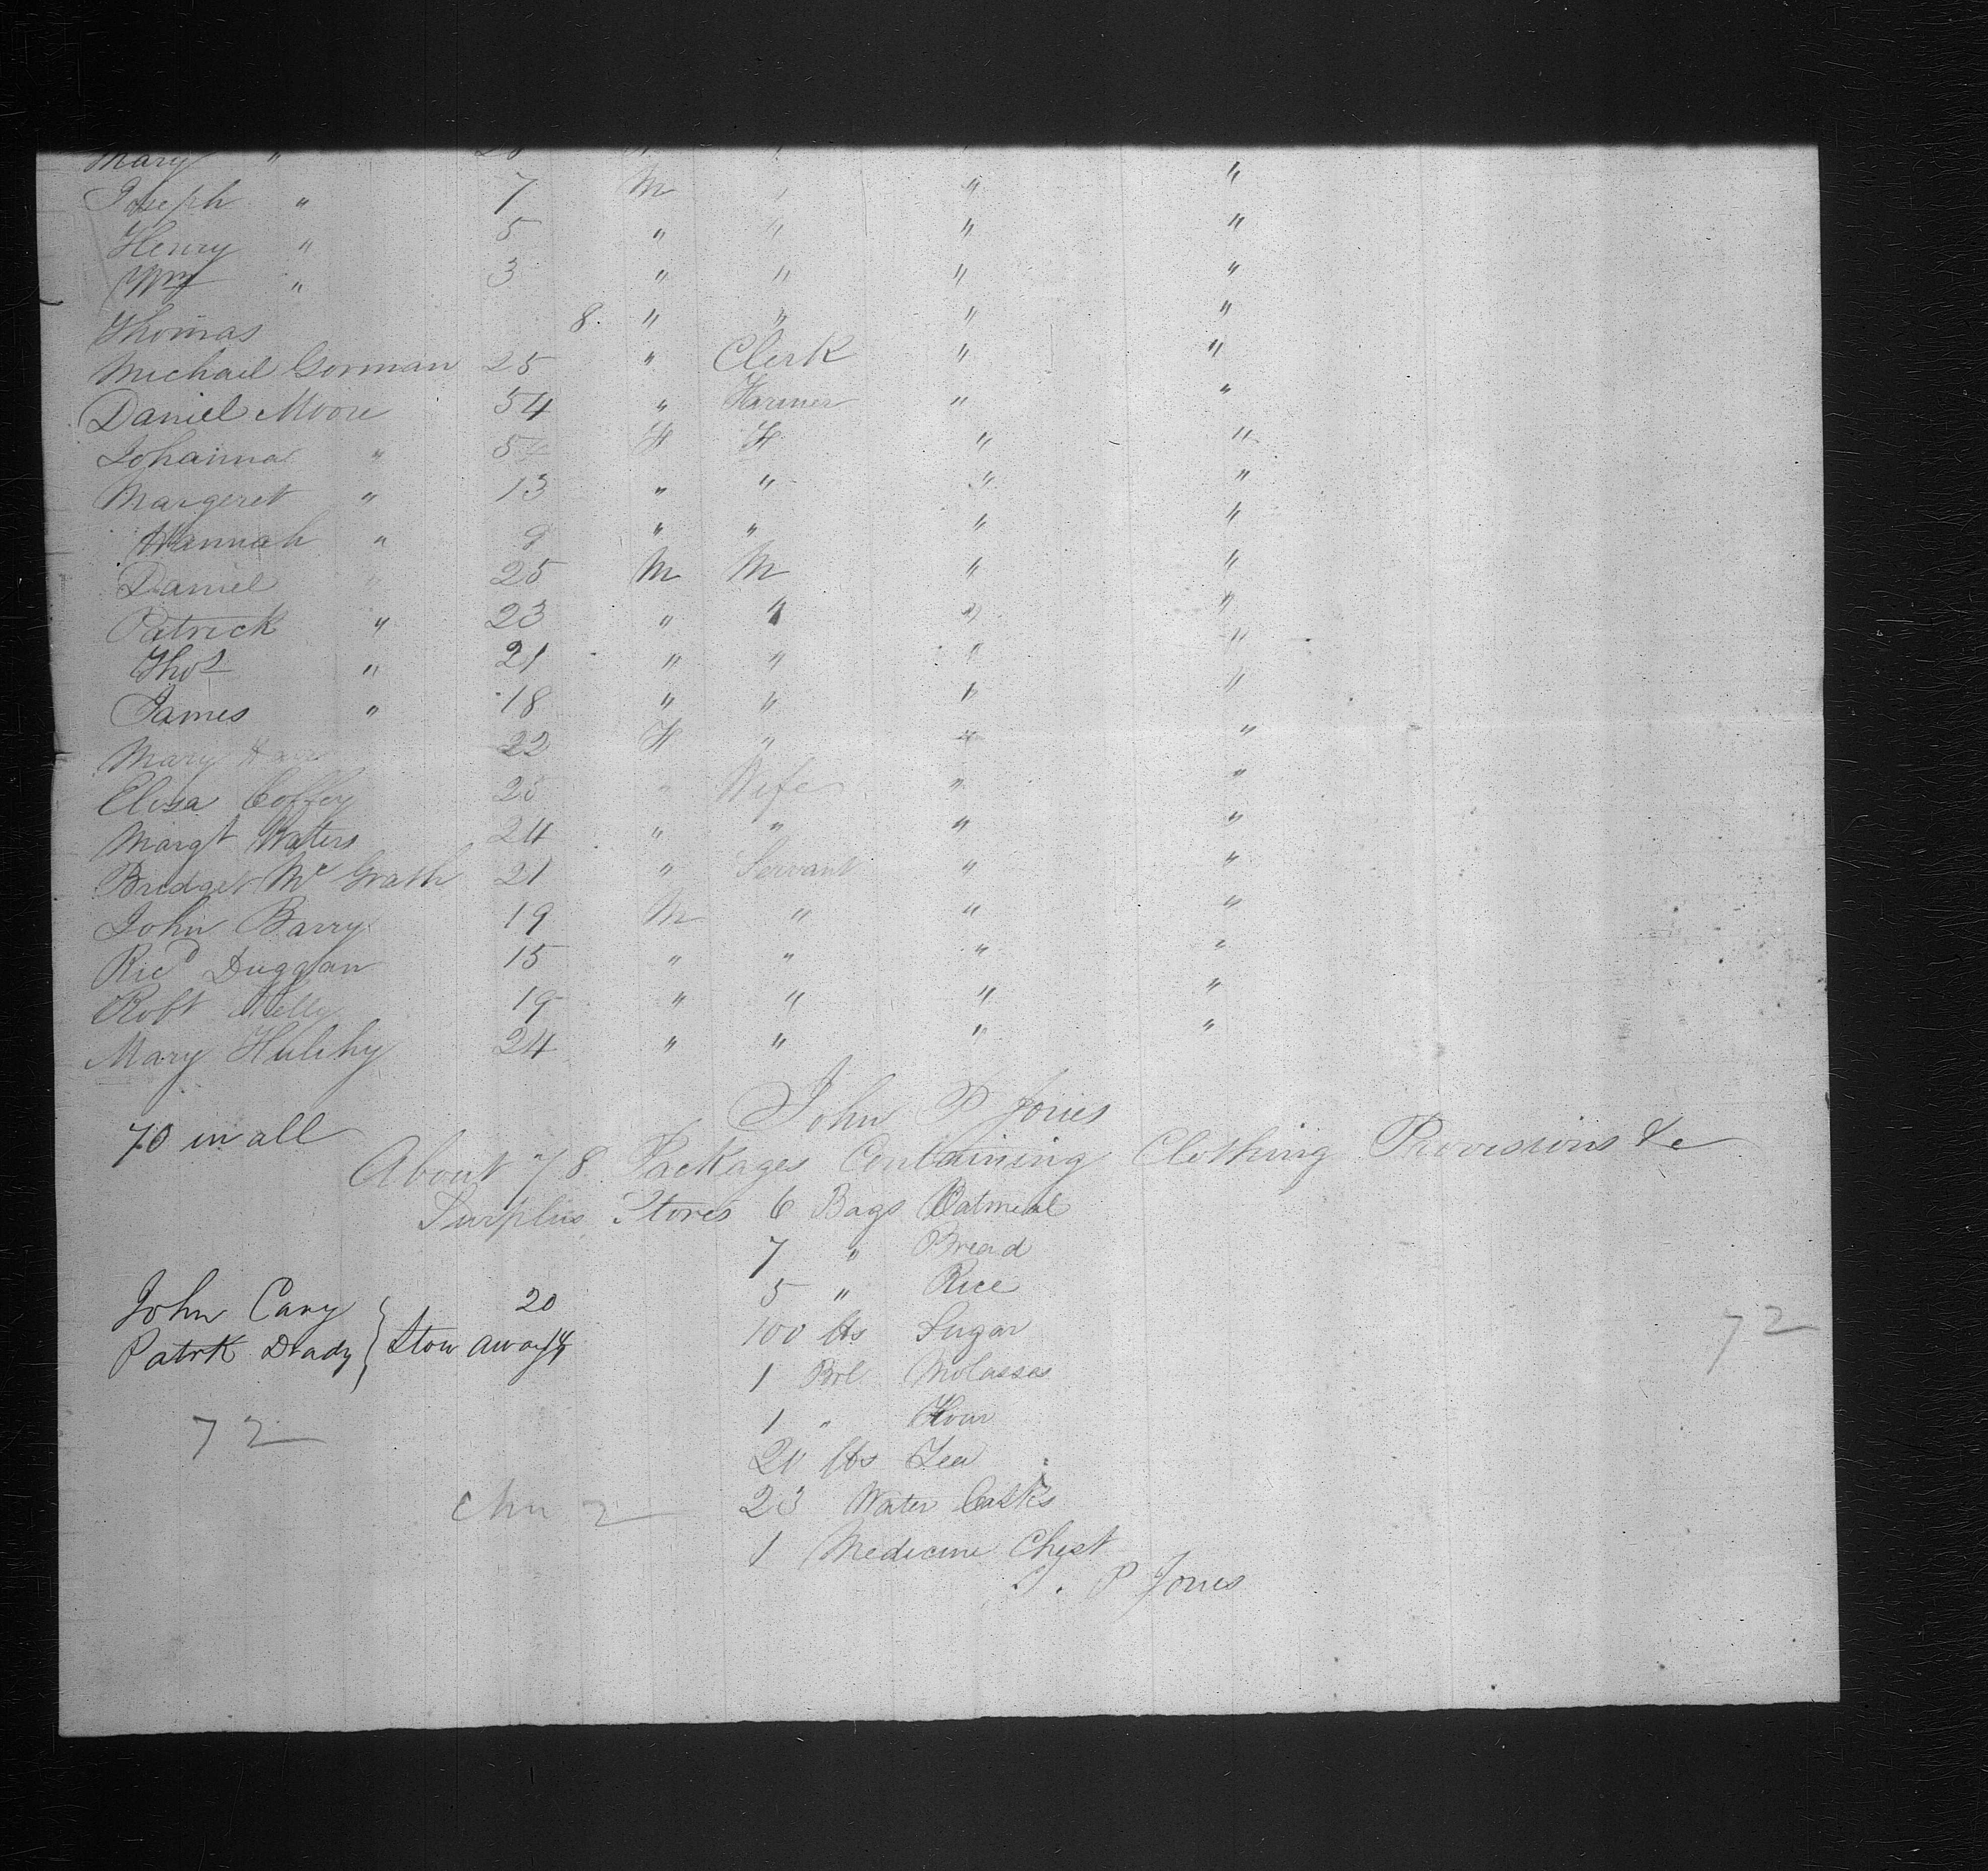 Mary " " "
Joseph " 7 M " " "
Henry " 5 " " " "
Wm " 3 " " " "
Thomas 8 " " " "
Michael Gorman 25 " Clerk " "
Daniel Moore 54 " Farmer " "
Johanna " F F " "
Margeret " 13 " " " "
Hannah " 9 " " " "
Daniel " 25 M M " "
Patrick " 23 " " " "
Thos " 21 " " " "
James " 18 " " " "
Mary 22 F " " "
Elisa Coffey 25 " Wife " "
Margt Waters 24 " " " "
Bridget Mc Grath 21 " Servant " "
John Barry 19 M " " "
Ricd Duggan 15 " " " "
Robt Kelly 19 " " " "
Mary Hulihy 24 " " " "
John P Jones
70 in all
About 78 Packages Containing Clothing Provisions &c
Surplus Stores 6 Bags Oatmeal
7 " Bread
5 " Rice
John Cary 20
100 lbs Sugar
Patrk Deady } Stow away 14
1 Brl Molasses
72
1 " Flour
72
20 lbs Tea
23 Water Casks
2
1 Medicine Chest
J. P Jones